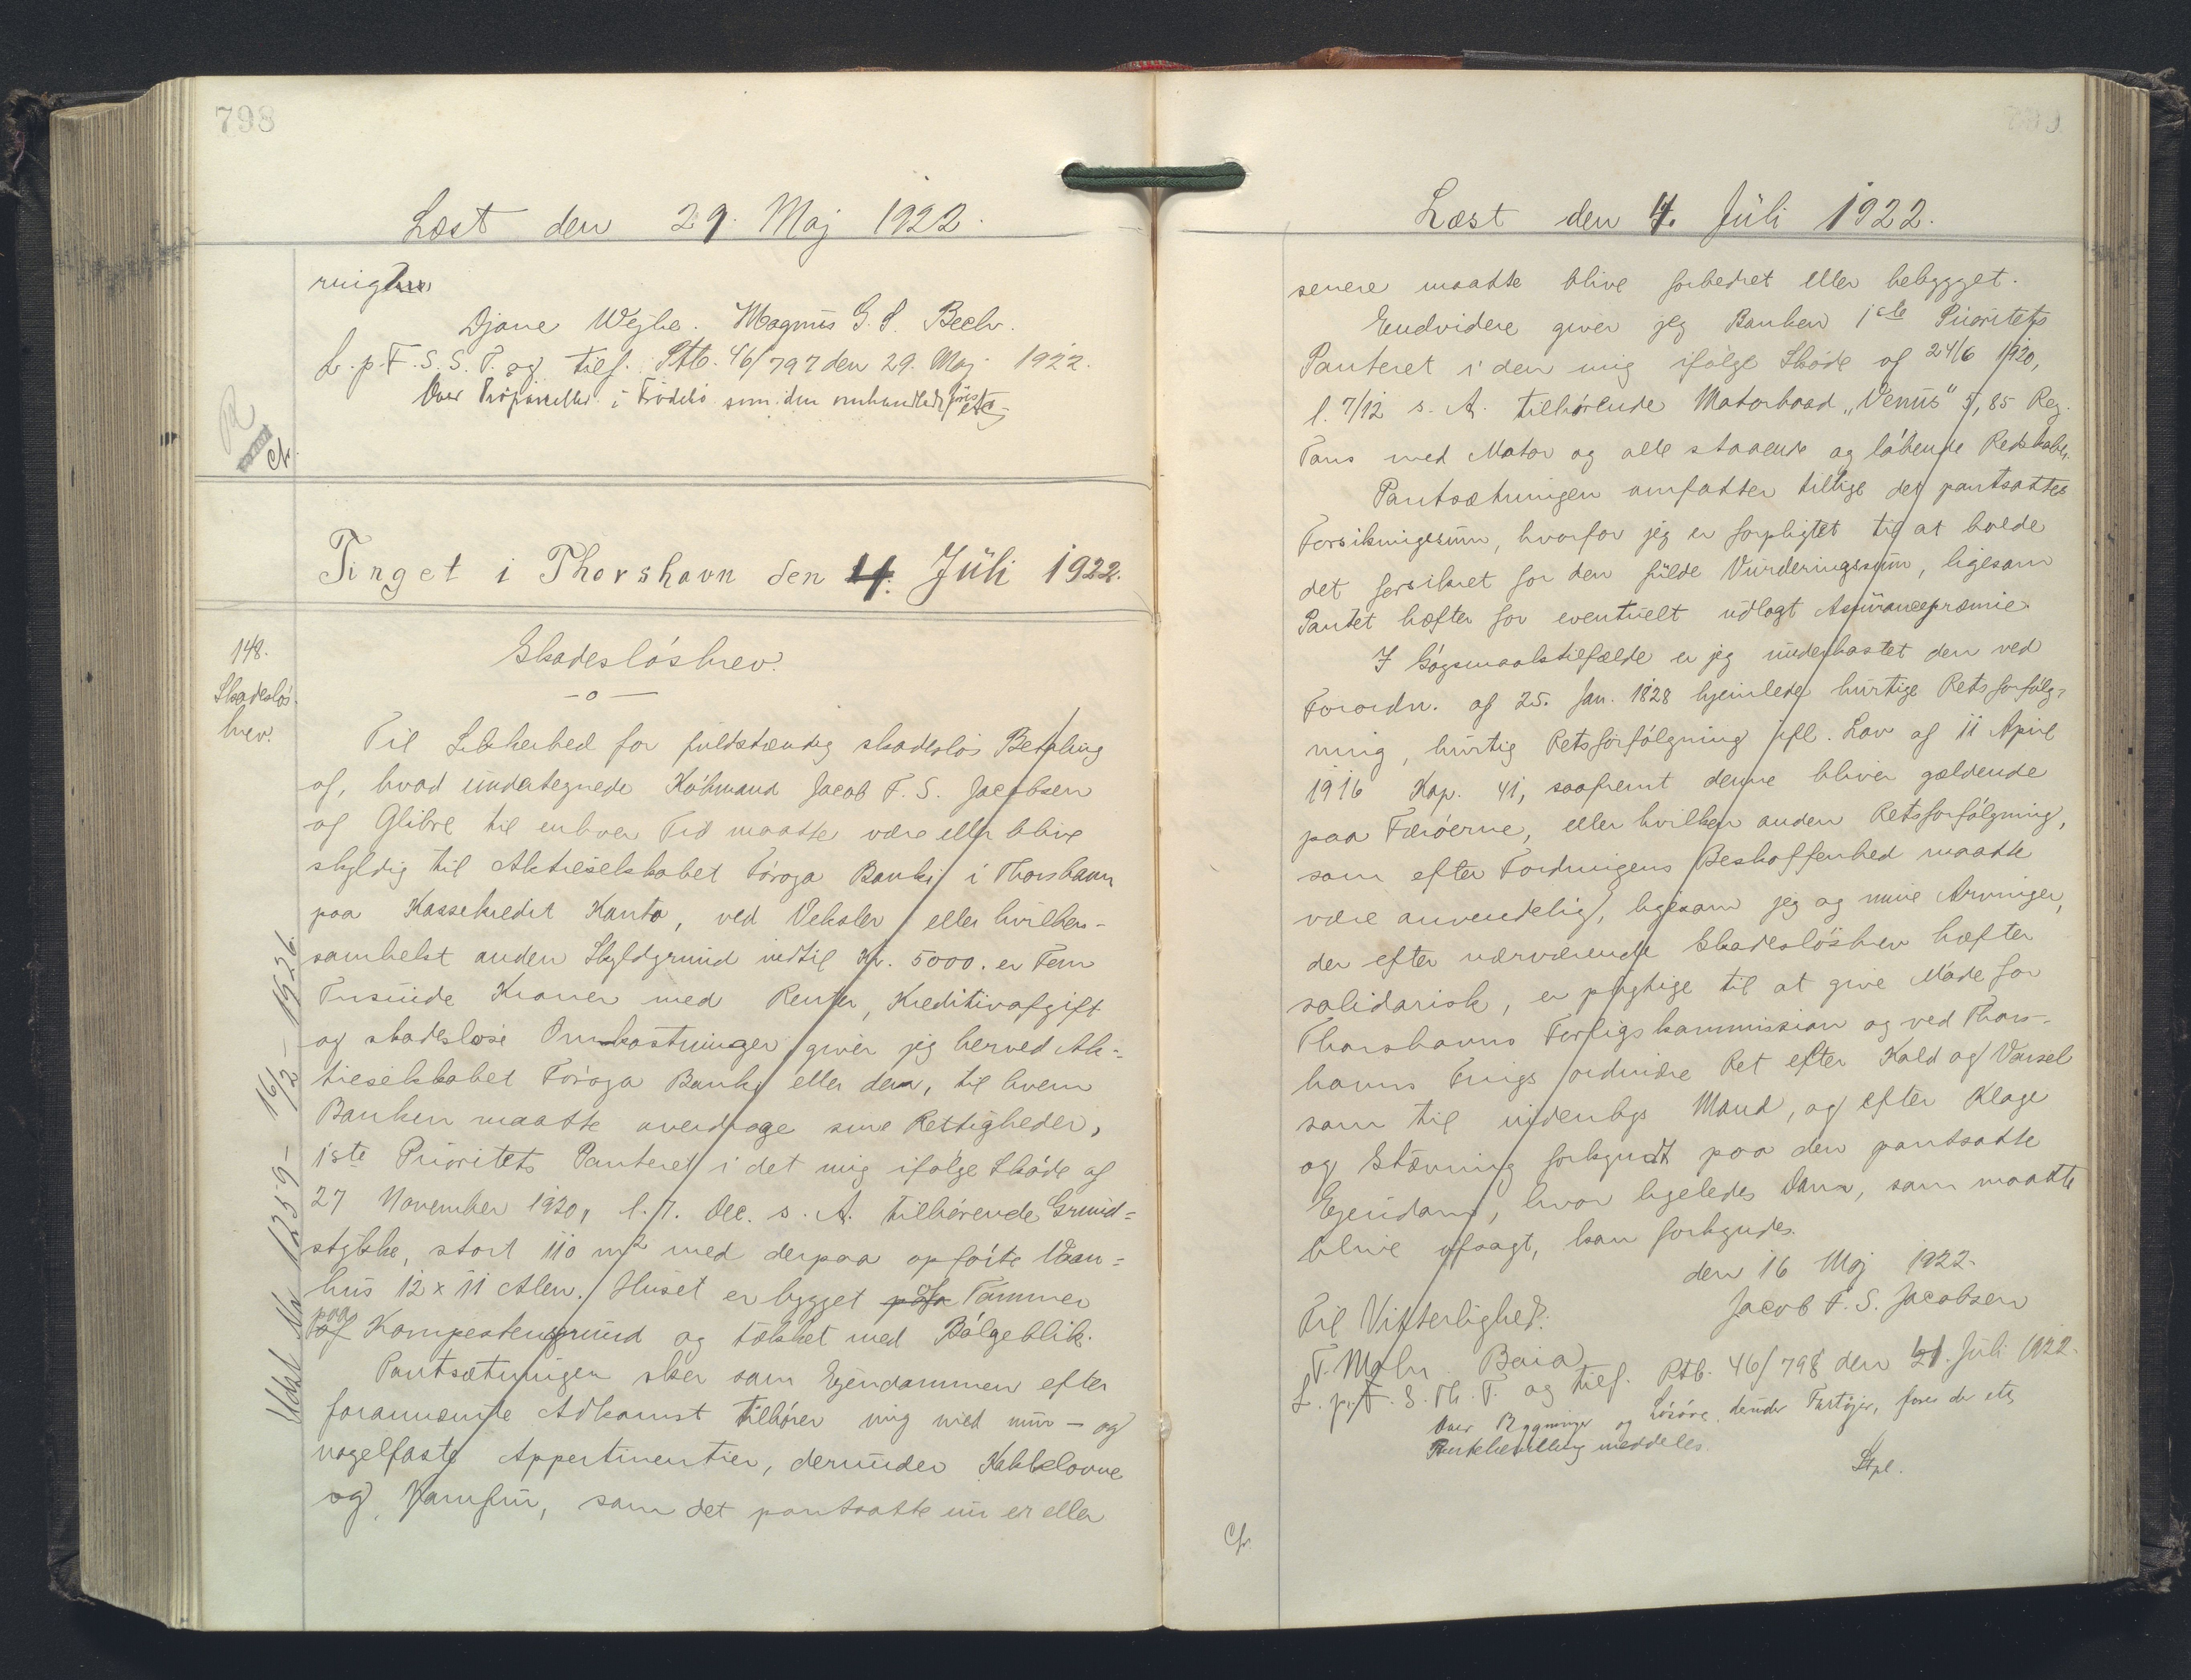 798
Læst den 29. Maj 1922.
ringen
Djone Wejhe. Magnus G. S. Bech.
L. p. F. S. S. T. og tilf. Ptb. 46/797 den 29. Maj 1922.
som den omhandlede
Tinget i Thorshavn den 4. Júli 1922.
148.
Skadesløs-
brev.
Skadesløsbrev.
Til Sikkerhed for fuldstændig skadesløs Betaling
af, hvad undertegnede Købmand Jacob F. S. Jacobsen
af Glibre til enhver Tid maatte være eller blive
skyldig til Aktieselskabet Føroya Banki i Thorshavn
paa Kassekredit Konto, ved Veksler eller hvilken-
somhelst anden Skyldgrund indtil Kr. 5000. er Fem
Tusinde Kroner med Renter, Kreditivafgift
og skadesløse Omkostninger giver jeg herved Ak-
tieselskabet Føroya Banki eller dem, til hvem
Banken maatte overdrage sine Rettigheder,
1ste Prioritets Panteret i det mig ifølge Skøde af
27 November 1920, l. 7. Dec. s. A. tilhørende Grund-
stykke, stort 110 m2 med derpaa opførte Vaan-
hus 12 x 11 Alen. Huset er bygget af Tømmer
paa Kampestengrund og tækket med Bølgeblik.
Pantsætningen sker som Ejendommen efter
forannævnte Adkomst tilhører mig med mur- og
nagelfaste Appertinentier, derunder Kakkelovne
og Komfur, som det pantsatte nu er eller
Udsl. No 1259 - 16/2 - 1926.
799
Læst den 4. Júli 1922.
senere maatte blive forbedret eller bebygget.
Endvidere giver jeg Banken 1ste Prioritets
Panteret i den mig ifølge Skøde af 24/6 1920,
l. 7/12 s. A. tilhørende Motorbaad „Venus" 5,85 Reg.
Tons med Motor og alle staaende og løbende Redskaber.
Pantsætningen omfatter tillige det pantsattes
Forsikringssum, hvorfor jeg er forpligtet til at holde
det forsikret for den fulde Vurderingssum, ligesom
Pantet hæfter for eventuelt udlagt Assurancepræmie.
I Søgsmaalstilfælde er jeg underkastet den ved
Forordn. af 25. Jan. 1828 hjemlede hurtige Retsforfølg-
ning, hurtig Retsforfølgning ifl. Lov af 11 April
1916 Kap. 41, saafremt denne bliver gældende
paa Færøerne, eller hvilken anden Retsforfølgning,
som efter Fordringens Beskaffenhed maatte
være anvendelig, ligesom jeg og mine Arvinger,
der efter nærværende Skadesløsbrev hæfter
solidarisk, er pligtige til at give Møde for
Thorshavns Forligskommission og ved Thors-
havns Tings ordinære Ret efter Kald og Varsel
som til indenbys Mand, og efter Klage
og Stævning forkyndt paa den pantsatte
Ejendom, hvor ligeledes Dom, som maatte
blive afsagt, kan forkyndes.
den 16 Maj 1922.
Jacob F. S. Jacobsen
Til Vitterlighed:
T. Mohr. Baia
L. p. F. S. Th. T. og tilf. Ptb. 46/798 den 4. Júli 1922.
Over Bygninger og Løsøre, derunder Fartøjer, føres der etc,
meddeles.
Stpl.
Cfr.